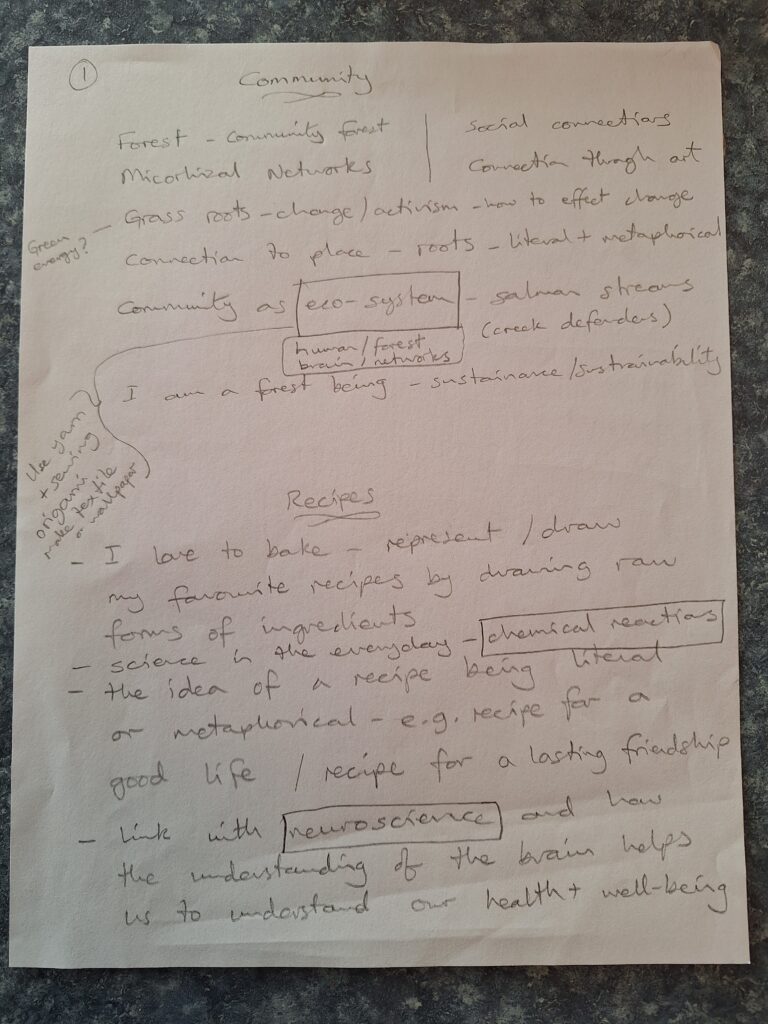 1
Community
Forest - Community forest
Micorhizal Networks
Social connections
Connection through art
Green energy?
- Grass roots - change/activism - how to effect change
Connection to place - roots - literal + metaphorical
Community as eco-system - salmon streams
(creek defenders)
human/forest
brain/networks
I am a forest being - sustainance/sustrainability
Use yarn
+ sewing
origami
make textile
or wallpaper
Recipes
- I love to bake - represent / draw
my favourite recipes by drawing raw
forms of ingredients
- science in the everyday - chemical reactions
- the idea of a recipe being literal
or metaphorical - e.g. recipe for a
good life / recipe for a lasting friendship
- Link with neuroscience and how
the understanding of the brain helps
us to understand our health + well-being